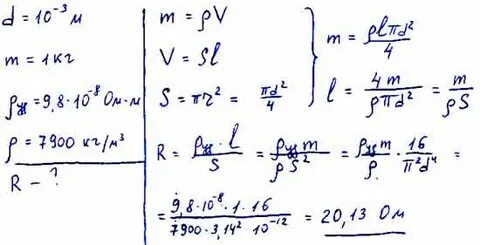 d = 10⁻³ м
m = 1 кг
ρуд = 9,8·10⁻⁸ Ом·м
ρ = 7900 кг/м³
R – ?
m = ρV
V = Sl
S = πr² = πd²/4
m = ρlπd²/4
l = 4m/ρπd² = m/ρS
R = ρуд·l/S = ρудm/ρS² = ρудm/ρ · 16/π²d⁴ =
= 9,8·10⁻⁸·1·16/7900·3,14² 10⁻¹² = 20,13 Ом